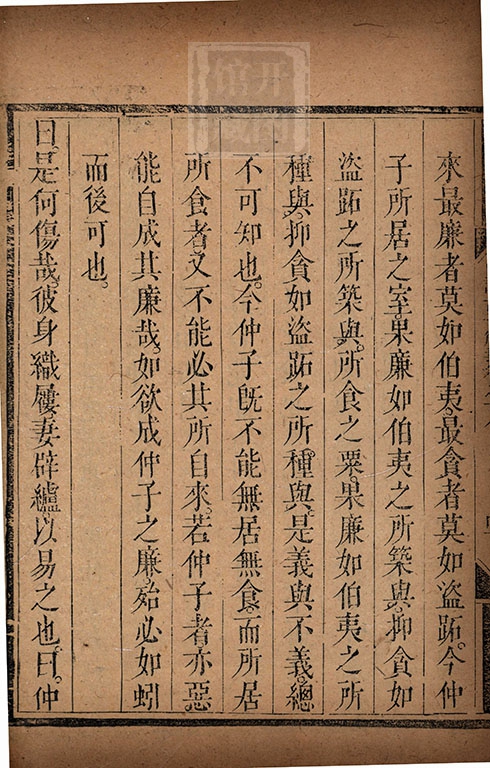 來最廉者莫如伯夷。最貪者莫如盜跖。今仲
子所居之室。果廉如伯夷之所築與。抑貪如
盜跖之所築與。所食之粟。果廉如伯夷之所
種與。抑貪如盜跖之所種與。是義與不義。總
不可知也。今仲子旣不能無居無食。而所居
所食者又不能必其所自來。若仲子者亦惡
能自成其廉哉。如欲成仲子之廉。殆必如蚓
而後可也。
曰。是何傷哉。彼身織屨。妻辟纑。以易之也。曰。仲